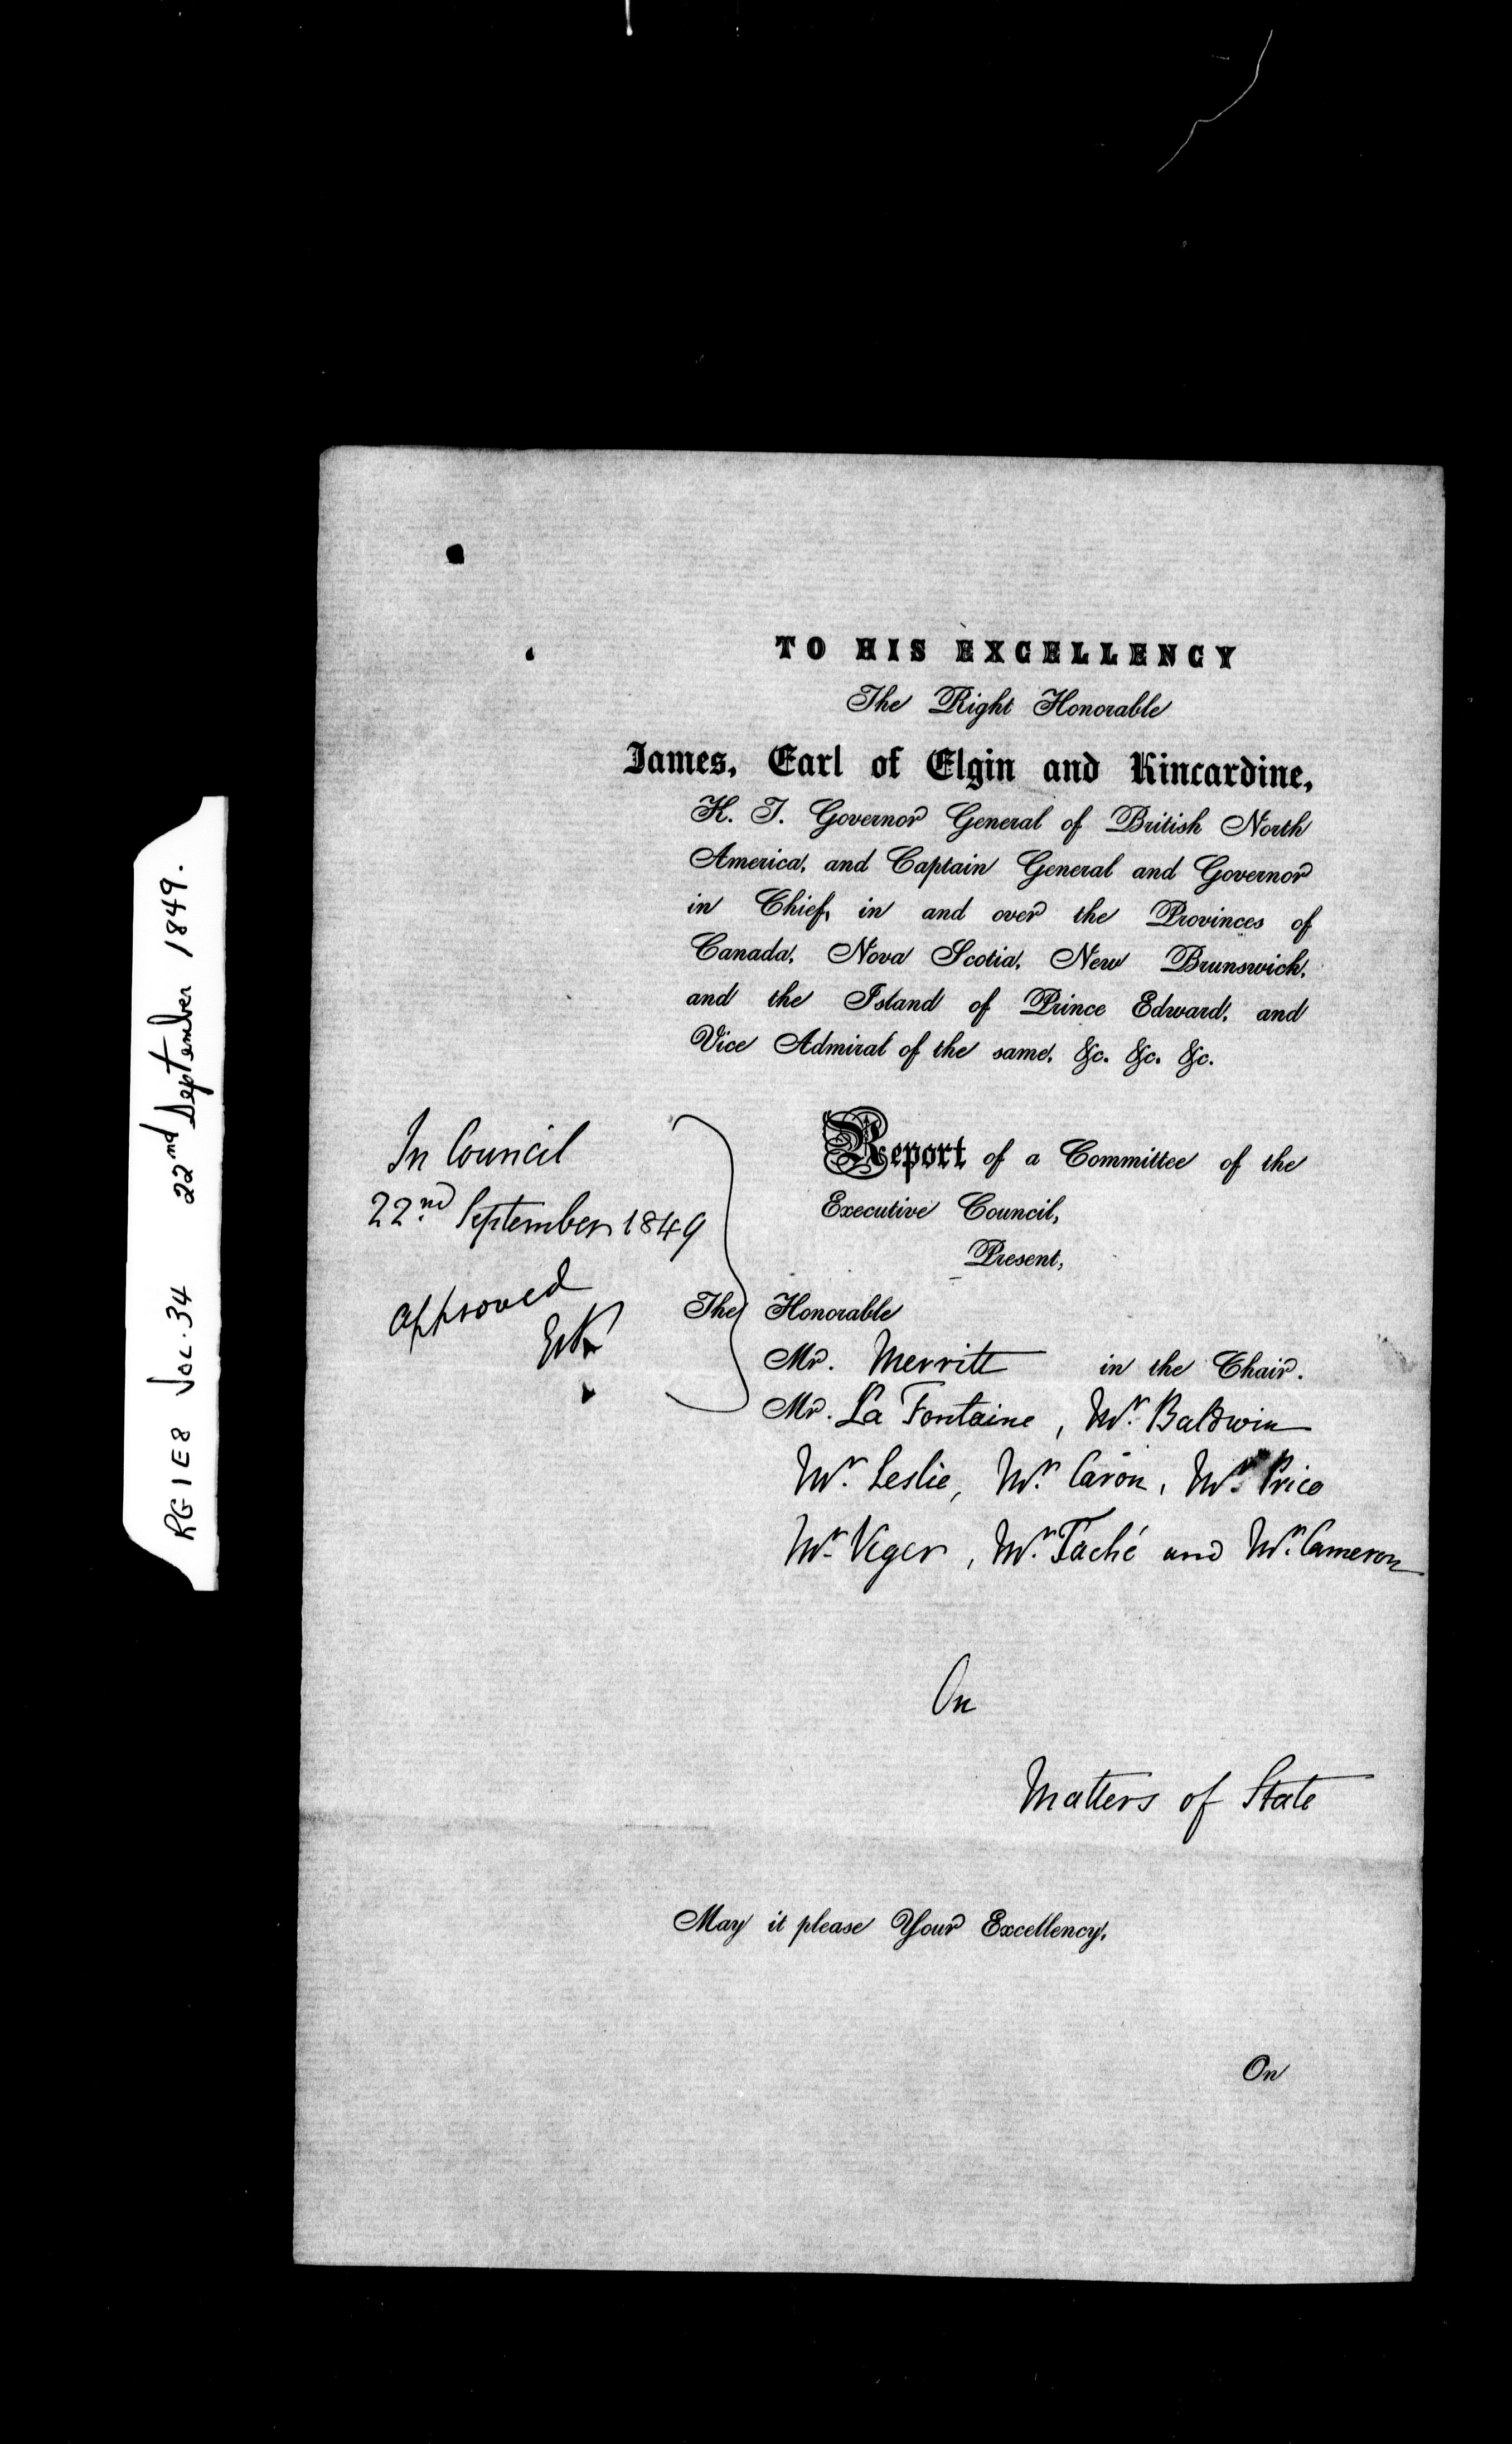 RG 1 E 8 VOL. 34 22nd September 1849.
TO HIS EXCELLENCY
The Right Honorable
James, Earl of Elgin and Kincardine,
K. T. Governor General of British North
America, and Captain General and Governor
in Chief, in and over the Provinces of
Canada, Nova Scotia, New Brunswick,
and the Island of Prince Edward, and
Vice Admiral of the same, &c. &c. &c.
In Council
22nd September 1849
approved
E&K
Report of a Committee of the
Executive Council,
Present,
The Honorable
Mr. Merritt in the Chair.
Mr. La Fontaine, Mr. Baldwin
Mr. Leslie, Mr. Caron, Mr. Price
Mr. Viger, Mr. Taché and Mr. Cameron
On
Matters of State
May it please Your Excellency,
On